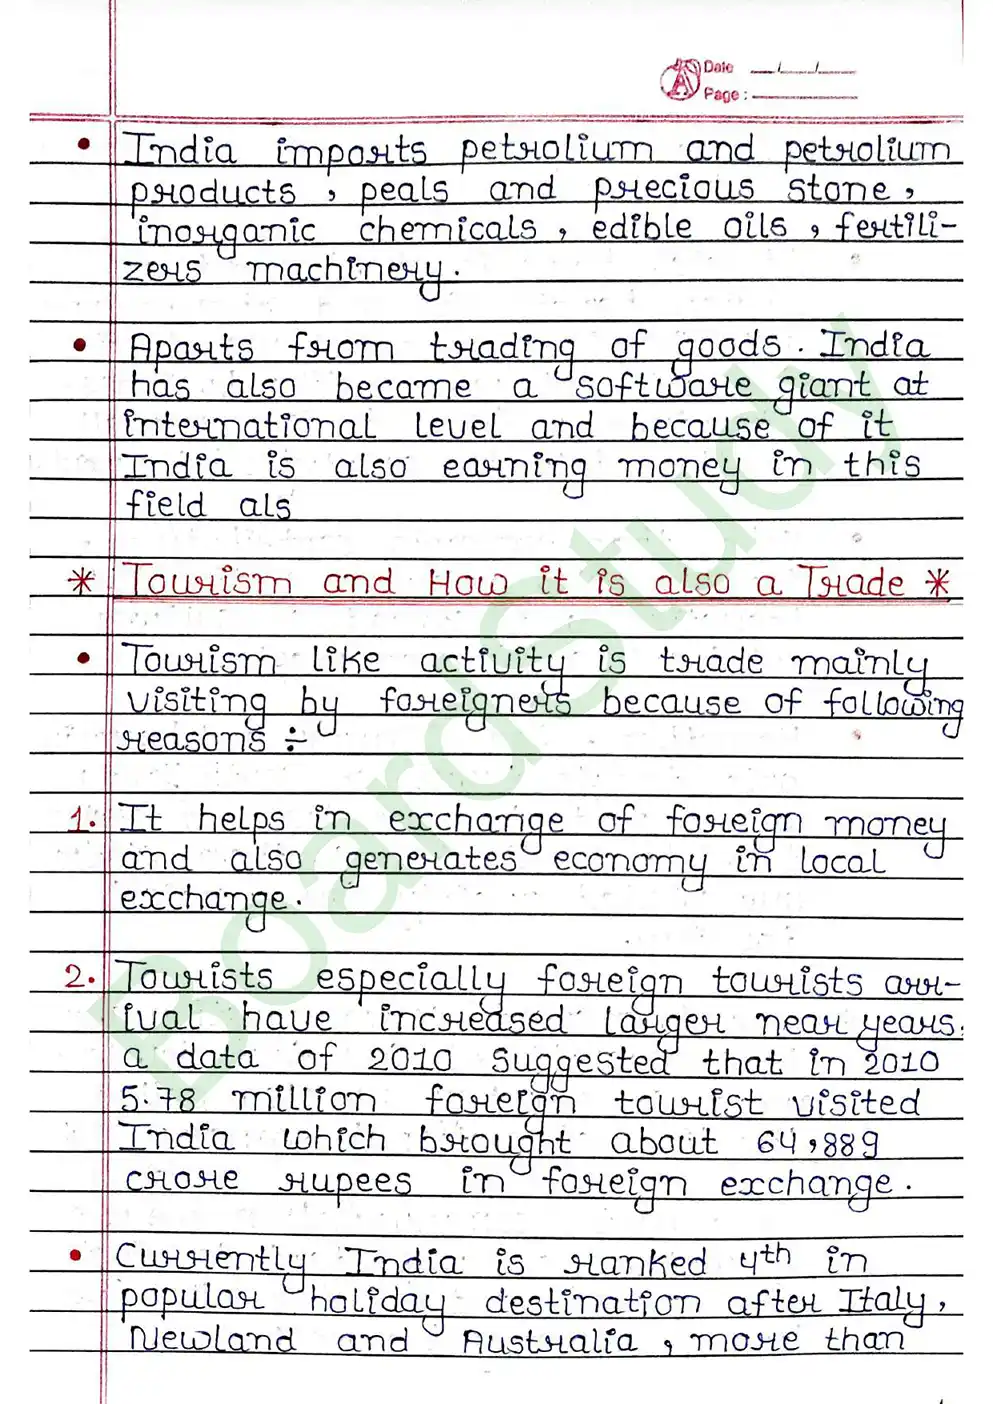 Date __/__/__
Page : ____
• India imports petrolium and petrolium
products , peals and precious stone ,
inorganic chemicals , edible oils , fertili-
zers machinery.
• Aparts from trading of goods. India
has also became a software giant at
international level and because of it
India is also earning money in this
field als
* Tourism and How it is also a Trade *
• Tourism like activity is trade mainly
visiting by foreigners because of following
reasons ÷
1. It helps in exchange of foreign money
and also generates economy in local
exchange.
2. Tourists especially foreign tourists arr-
ival have increased larger near years.
a data of 2010 suggested that in 2010
5.78 million foreign tourist visited
India which brought about 64,889
crore rupees in foreign exchange.
• Currently India is ranked 4th in
popular holiday destination after Italy,
Newland and Australia , more than
Board Study